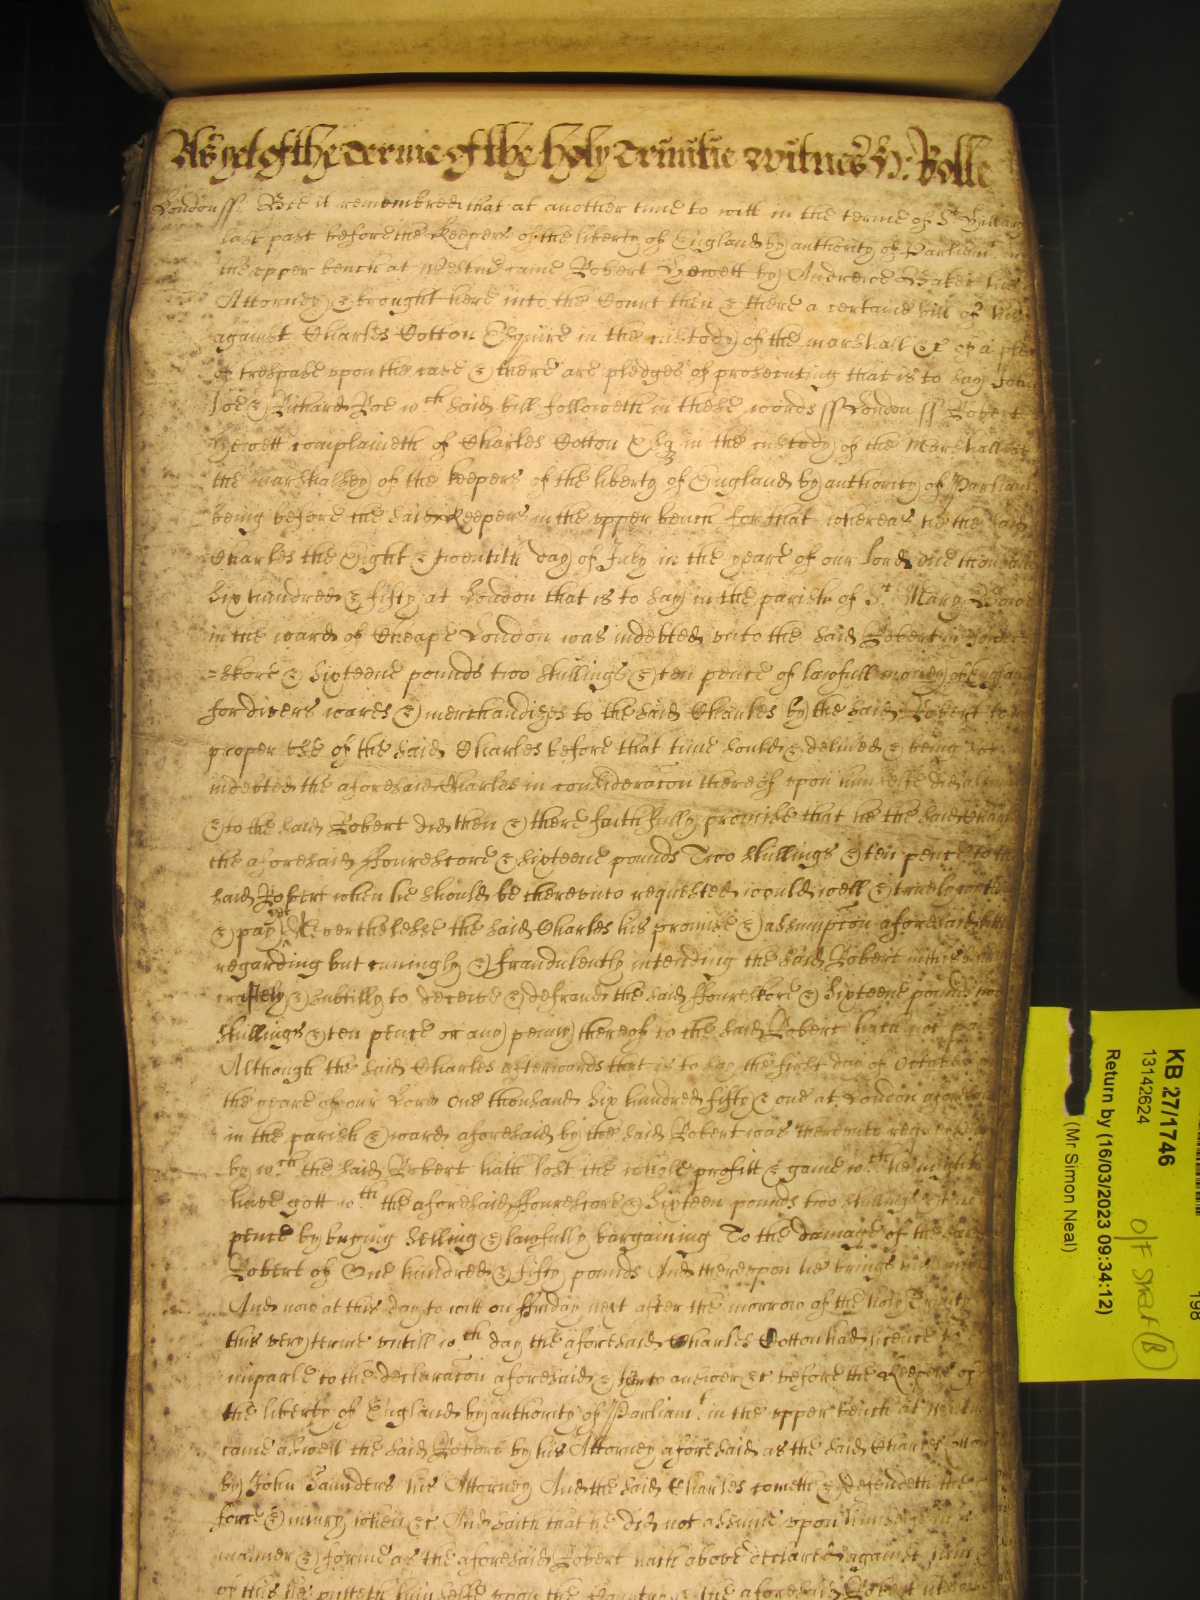 As yet of the terme of the holy Trinitie witnes H: Rolle
London ss. Bee it remembred that at another time to witt in the terme of St. Hillary
last past before the Keepers of the liberty of England by authority of Parliamt. in
the upper bench at Westmr. came Robert Hewett by Andrewe Baker his
Attorney & brought here into the Court then & there a certaine bill of his
against Charles Cotton Esquire in the custody of the marshall &c of a plea
of trespase upon the case & there are pledges of prosecuting that is to say John
Doe & Richard Roe wch. said bill followeth in these words ss London ss Robert
Hewett complaineth of Charles Cotton Esq in the custody of the Marshall of
the marshalsey of the keepers of the liberty of England by authority of Parliamt.
being before the said Keepers in the upper bench for that whereas hee the said
Charles the Eight & twentith day of July in the yeare of our Lord one thousand
six hundred & fifty at London that is to say in the parish of St. Mary Bowe
in the ward of Cheape London was indebted unto the said Robert in foure=
=skore & sixteene pounds two shillings & ten pence of lawfull money of England
for divers wares & merchandizes to the said Charles by the said Robert to
proper use of the said Charles before that time sould & delived & being so
indebted the aforesaid Charles in consideracon thereof upon himselfe did assume
& to the said Robert did then & there faithfully promise that he the said Charles
the aforesaid ffourescore & sixteene pounds Two shillings & ten pence to the
said Robert when he should be thereunto requested would well & truely content
& pay yet Neverthelesse the said Charles his promise & assumption aforesaid little
regarding but cuningly & fraudulently intending the said Robert in this behalf
craftely & subtilly to deceive & defraud the said ffoureskore & sixteene pounds two
shillings & ten pence or any penny thereof to the said Robert hath not paid
Although the said Charles afterwards that is to say the first day of October in
the yeare of our Lord One thousand six hundred fifty & one at London aforesaid
in the parish & ward aforesaid by the said Robert was thereunto required
by wch. the said Robert hath lost the whole profitt & gaine wch. he might
have gott wth. the aforesaid ffourescore & sixteen pounds two shillings & ten
pence by buying selling & lawfully bargaining To the damage of the said
Robert of One hundred & fifty pounds And thereupon he brings his suite
And now at this day to witt on ffriday next after the morrow of the holy Trinity
this very terme untill wch. day the aforesaid Charles Cotton had licence to
imparle to the declaracon aforesaid & then to answer &c before the Keepers of
the liberty of England by authority of Parliamt. in the upper bench at Westmr.
came aswell the said Robert by his Attorney aforesaid as the said Charles Cotton
by John Saunders his Attorney And the said Charles cometh & defendeth the
force & iniury when &c And saith that he did not assume upon himselfe in
manner & forme as the aforesaid Robert hath above declared against him
of this he putteth himselfe upon the Countrey & the aforesaid Robert likewise
KB 27/1746
13142624
Return by (16/03/2023 09:34:12)
(Mr Simon Neal)
O/F Strat (B)
198